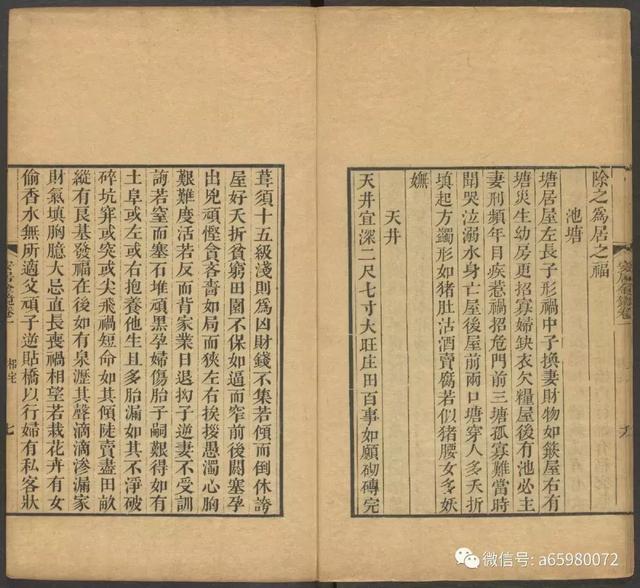 除之為居之福
池塘
塘居屋左長子形禍中子換妻財物如簸屋右有
塘災生幼房更招寡婦缺衣欠糧屋後有池必主
妻刑頻年目疾惹禍招危門前三塘孤寡難當時
聞哭泣溺水身亡屋後屋前兩口塘穿人多夭折
填起方蠲形如猪肚沽酒賣腐若似猪腰女多妖
嫵
天井
天井宜深二尺七寸大旺庄田百事如願砌磚完
葺須十五級淺則為凶財錢不集若傾而倒休誇
屋好夭折貧窮田園不保如逼而窄前後闕塞孕
出兇頑慳貪吝嗇如局而狹左右挨拶愚濁心胸
艱難度活若反而背家業日退拘子逆妻不受訓
誨若窒而塞石堆頑黑孕婦傷胎子嗣艱得如有
土阜或左或右抱養他生且多胎漏如其不淨破
碎坑穽或突或尖飛禍短命如其傾陡賣盡田畝
縱有艮基發福在後如有泉瀝其聲滴滴滲漏家
財氣填胸臆大忌直長喪禍相望若栽花卉有女
偷香水無所適父頑子逆貼橋以行婦有私客狀
七
微信号: a65980072